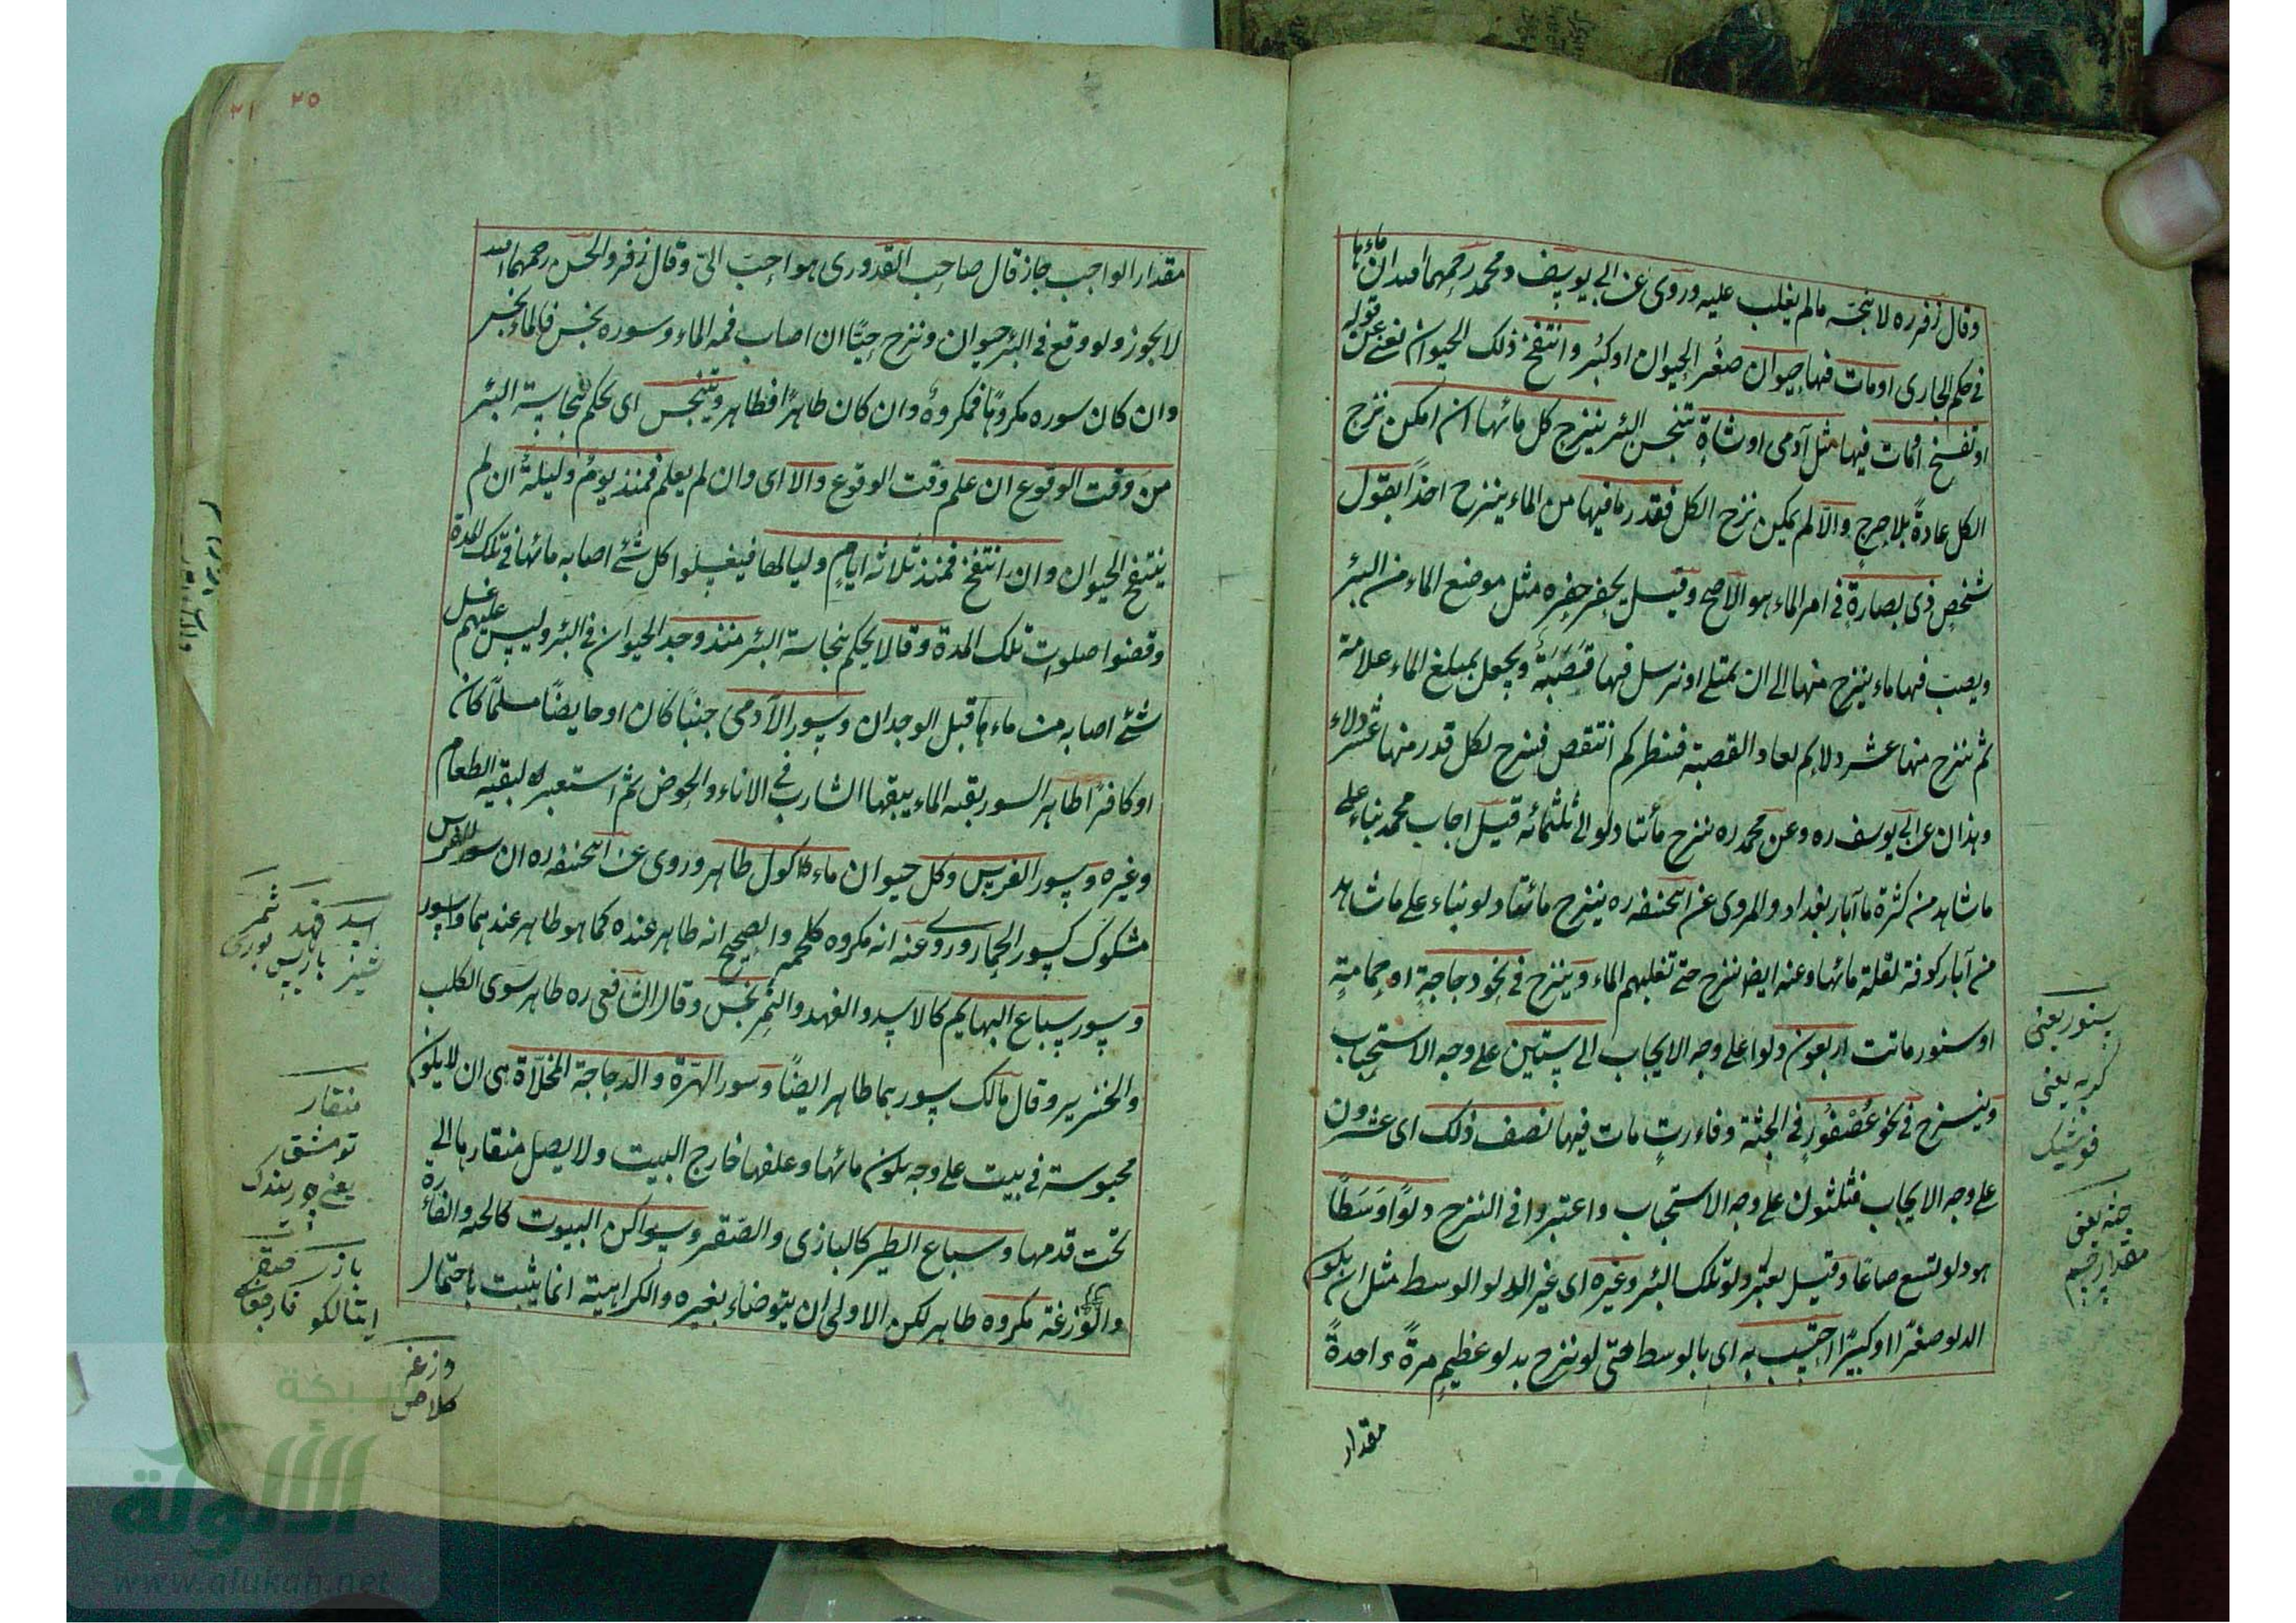 وقال زفر ره لا ينجّه مالم يغلب عليه وروى عن ابى يوسف ومحمد رحمهما الله ان ماءها
فى حكم الجارى او مات فيها حيوان صغُر الحيوان او كبُر وانتفخ ذلك الحيوان
او تفسخ او مات فيها مثل آدمى او شاةٍ تنجس البئر ينزح كل مائها ان امكن نزح
الكل عادةً بلا حرج والّا لم يمكن نزح الكل فقدر ما فيها من الماء ينزح اخذاً بقول
شخصٍ ذى بصارةٍ فى امر الماء هو الاصح وقيل يحفر حفره مثل موضع الماء من البئر
ويصب فيها ماء ينزح منها الى ان يمتلى او نرسل فيها قصَبَةٌ ويجعل بمبلغ الماء علامة
ثم ينزح منها عشر دلاء ثم تعاد القصبة فينظر كم انتقص فينزح لكل قدر منها عشر دلاء
وهذان عن ابى يوسف ره وعن محمد ره ينزح مأئتا دلو الى ثلثمائه قيل اجاب محمد بناء على
ما شاهد من كثرة ماء آبار بغداد والمروى عن ابى حنيفه ره ينزح مائة دلو بناء على ما شاهد
من آبار كوفة لقلة مائها وعنه ايضا ينزح حتى تغلبهم الماء وينزح فى نحو دجاجةٍ او حمامةٍ
او سنور ماتت اربعون دلوا على وجه الايجاب الى ستين على وجه الاستحباب
وينزح فى نحو عُصْفُورٍ فى الجثة وفاءرةٍ مات فيها نصف ذلك اى عشرون
على وجه الايجاب فثلثون على وجه الاستحباب واعتبروا فى النزح دلوًا وَسَطًا
هو دلو تسع صاعًا وقيل يعتبر دلو تلك البئر وغيره اى غير الدلو الوسط مثل ان يكون
الدلو صغيرًا او كبيرًا احتسب به اى بالوسط حتى لو نزح بدلو عظيمٍ مرةً واحدةً
مقدار
سنور يعنى
كربه يعنى
فوشيك
جثه يعنى
مقدار جسم
٢٥
مقدار الواجب جاز قال صاحب القدورى هو احبّ الىّ وقال زفر والحسن رحمهما الله
لا يجوز ولو وقع فى البئر حيوان ونزح حيًّا ان اصاب فمه الماء وسوره نجس فالماء نجس
وان كان سوره مكروهًا فمكروهٌ وان كان طاهرًا فطاهر ويتنجس اى يحكم بنجاسة البئر
من وقت الوقوع ان علم وقت الوقوع والا اى وان لم يعلم فمنذ يومٌ وليلةٌ ان لم
ينتفخ الحيوان وان انتفخ فمنذ ثلاثة ايامٍ ولياليها فيغسلوا كل شئ اصابه مائها فى تلك المدة
وقضوا صلوات تلك المدة وقالا يحكم بنجاسة البئر منذ وجد الحيوان فى البئر وليس عليهم غسل
شئ اصابه من ماءها قبل الوجدان وسور الآدمى جنبًا كان او حايضًا مسلمًا كان
او كافرًا طاهر السور بقيه الماء يبقها الشارب فى الاناء والحوض ثم استعير لبقيه الطعام
وغيره وسور الفرس وكل حيوان ماءكول طاهر وروى عن ابى حنيفه ره ان سور الفرس
مشكوك كسور الحمار وروى عنه انه مكروه كلحمه والصحيح انه طاهر عنده كما هو طاهر عندهما وسور
وسور سباع البهايم كالاسد والفهد والنمر نجس وقال الشافعى ره طاهر سوى الكلب
والخنزير وقال مالك سورهما طاهر ايضًا وسور الهرّة والدجاجة المخلّاة هى ان لا يكون
محبوسة فى بيت على وجه يكون مائها وعلفها خارج البيت ولا يصل منقارها الى
تحت قدمها وسباع الطير كالبازى والصّقر وسواكن البيوت كالحيه والفأره
والوزغة مكروه طاهر لكن الاولى ان يتوضاء بغيره والكراهية انما يثبت باحتمال
اسد فهد نمر
پارس
منقار
يعنى
باز صقر
ايتالكو
وزغه
كلاص
شبكة
الألوكة
www.alukah.net